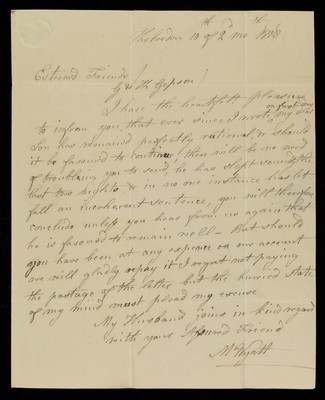 10th of 2nd mo 1818
Esteemd Friends
G & H Jepson!
I have the heartfelt pleasure
to inform you, that ever since I wrote, my
Son has remained perfectly rational, & should
it be favoured to continue, there will be no need
of troubling you to send, he has slept soundly the
last two nights, & in no one instance has let
fall an incoherent sentence, you will therefore
conclude unless you hear from us again that
he is favored to remain well - But should
you have been at any expence on our account
we will gladly repay it I regret not paying
the postage of the letter but the hurried State
of my mind must plead my excuse
My Husband joins in kind regard
with your Assured Friend
M Wyatt